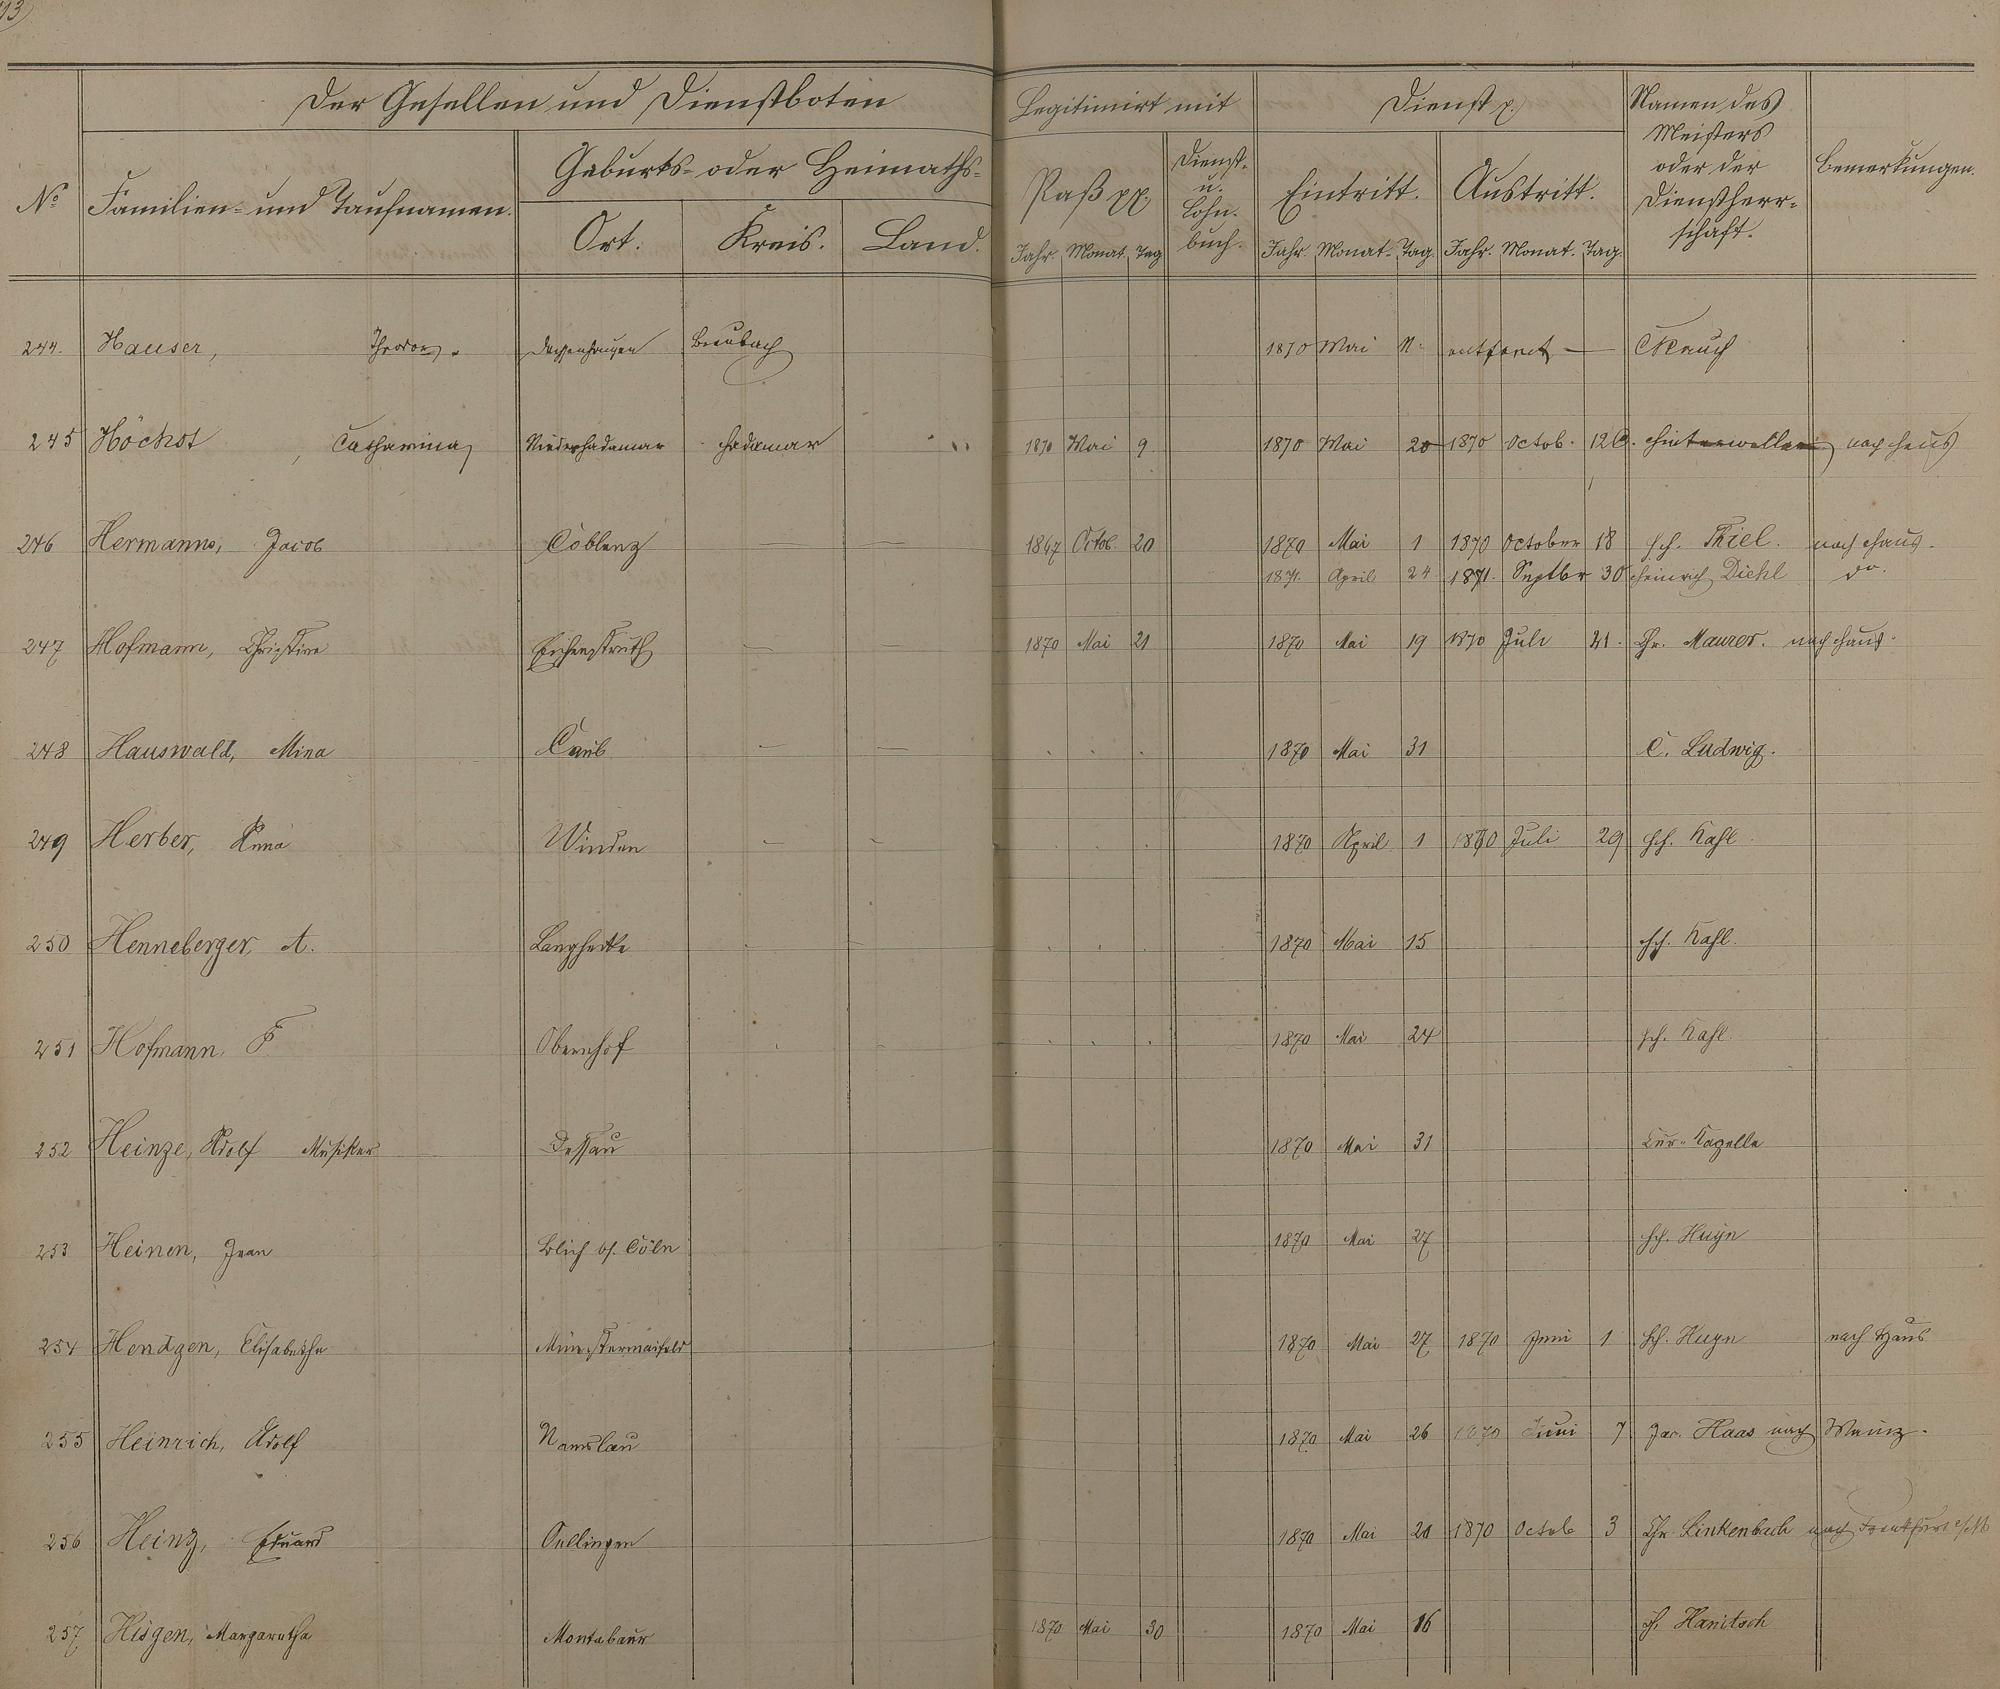 Der Gesellen und Dienstboten
Legitimirt mit
Dienst p.
Namen des
Meisters
oder der
Dienstherr-
schaft.
Bemerkungen.
No
Familien- und Taufnamen.
Geburts- oder Heimaths-
Ort.
Kreis.
Land.
Paß pp.
Dienst-
u.
Lohn-
buch.
Eintritt.
Austritt.
Jahr. Monat. Tag
Jahr. Monat. Tag.
Jahr. Monat. Tag.
244. Hauser, Theodor. Braubach 1870 Mai entfernt — Rauch
245 Höchst, Catharina Niederhadamar Hadamar 1870 Mai 9. 1870 Mai 20 1870 Octob. 12 nach Haus
246 Hermanns, Jacob Coblenz — — 1867 Octob. 20 1870 Mai 1 1870 October 18 Hch. Thiel. nach Haus.
1871. April 24 1871. Septbr 30 Heinrich Diehl do.
247 Hofmann, Christine Eichenstruth — — 1870 Mai 21 1870 Mai 19 1870 Juli 21. Chr. Maurer. nach Haus.
248 Hauswald, Mina Caub — — 1870 Mai 31 C. Ludwig.
249 Herber, Anna Winden - - 1870 April 1 1870 Juli 29 Hch. Kahl.
250 Henneberger, A. Langhecke 1870 Mai 15 Hch. Kahl.
251 Hofmann, F Obernhof 1870 Mai 24 Hch. Kahl.
252 Heinze, Adolf Musiker Dessau 1870 Mai 31 Cur-Kapelle
253 Heinen, Jean Cöln 1870 Mai 27 Hch. Huyn
254 Hendgen, Elisabetha Münstermaifeld 1870 Mai 27 1870 Juni 1 Hch. Huyn nach Haus
255 Heinrich, Adolf Namslau 1870 Mai 26 1870 Juni 7 Jac. Haas nach Mainz.
256 Heinz, Eduard Oellingen 1870 Mai 20 1870 Octob 3 Chr. Linkenbach nach Frankfurt a/M
257 Hisgen, Margaretha Montabaur 1870 Mai 30 1870 Mai 16 Hanitsch